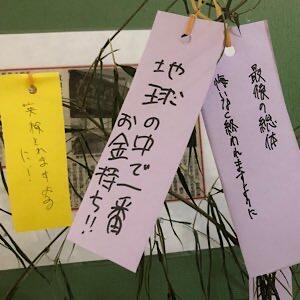 最後の総体
悔いなく終われますように
地球の中で一番
お金持ち!!
英検とれますよう
に!!